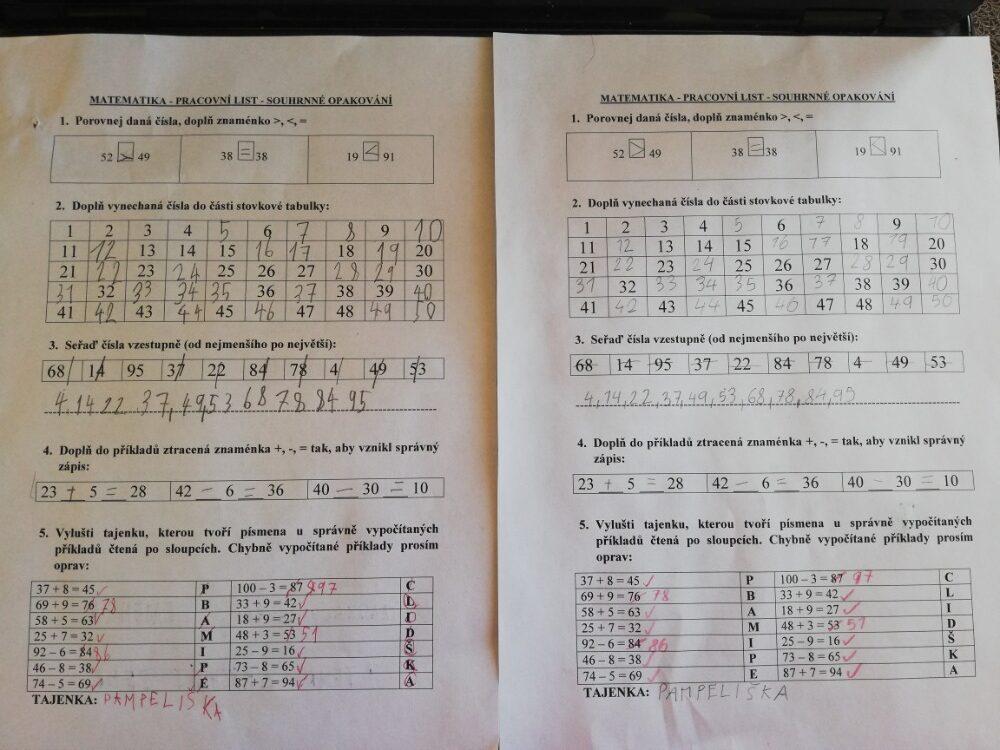 MATEMATIKA - PRACOVNÍ LIST - SOUHRNNÉ OPAKOVÁNÍ
1. Porovnej daná čísla, doplň znaménko >, <, =
52 > 49 38 = 38 19 < 91
2. Doplň vynechaná čísla do části stovkové tabulky:
1 2 3 4 5 6 7 8 9 10
11 12 13 14 15 16 17 18 19 20
21 22 23 24 25 26 27 28 29 30
31 32 33 34 35 36 37 38 39 40
41 42 43 44 45 46 47 48 49 50
3. Seřaď čísla vzestupně (od nejmenšího po největší):
68 14 95 37 22 84 78 4 49 53
4,14 22 37,49,53 68 78 84 95
4. Doplň do příkladů ztracená znaménka +, -, = tak, aby vznikl správný
zápis:
23 + 5 = 28 42 - 6 = 36 40 - 30 = 10
5. Vylušti tajenku, kterou tvoří písmena u správně vypočítaných
příkladů čtená po sloupcích. Chybně vypočítané příklady prosím
oprav:
37 + 8 = 45 ✓ P 100 – 3 = 87 97 C
69 + 9 = 76 78 B 33 + 9 = 42 ✓ L
58 + 5 = 63 ✓ A 18 + 9 = 27 ✓ I
25 + 7 = 32 ✓ M 48 + 3 = 53 51 D
92 – 6 = 84 86 I 25 – 9 = 16 ✓ Š
46 – 8 = 38 ✓ P 73 – 8 = 65 ✓ K
74 – 5 = 69 ✓ E 87 + 7 = 94 ✓ A
TAJENKA: PAMPELIŠKA
MATEMATIKA - PRACOVNÍ LIST - SOUHRNNÉ OPAKOVÁNÍ
1. Porovnej daná čísla, doplň znaménko >, <, =
52 > 49 38 = 38 19 < 91
2. Doplň vynechaná čísla do části stovkové tabulky:
1 2 3 4 5 6 7 8 9 10
11 12 13 14 15 16 17 18 19 20
21 22 23 24 25 26 27 28 29 30
31 32 33 34 35 36 37 38 39 40
41 42 43 44 45 46 47 48 49 50
3. Seřaď čísla vzestupně (od nejmenšího po největší):
68 14 95 37 22 84 78 4 49 53
4,14,22,37,49,53,68,78,84,95
4. Doplň do příkladů ztracená znaménka +, -, = tak, aby vznikl správný
zápis:
23 + 5 = 28 42 - 6 = 36 40 - 30 = 10
5. Vylušti tajenku, kterou tvoří písmena u správně vypočítaných
příkladů čtená po sloupcích. Chybně vypočítané příklady prosím
oprav:
37 + 8 = 45 ✓ P 100 – 3 = 87 97 C
69 + 9 = 76 78 B 33 + 9 = 42 ✓ L
58 + 5 = 63 ✓ A 18 + 9 = 27 ✓ I
25 + 7 = 32 ✓ M 48 + 3 = 53 51 D
92 – 6 = 84 86 I 25 – 9 = 16 ✓ Š
46 – 8 = 38 ✓ P 73 – 8 = 65 ✓ K
74 – 5 = 69 ✓ E 87 + 7 = 94 ✓ A
TAJENKA: PAMPELIŠKA